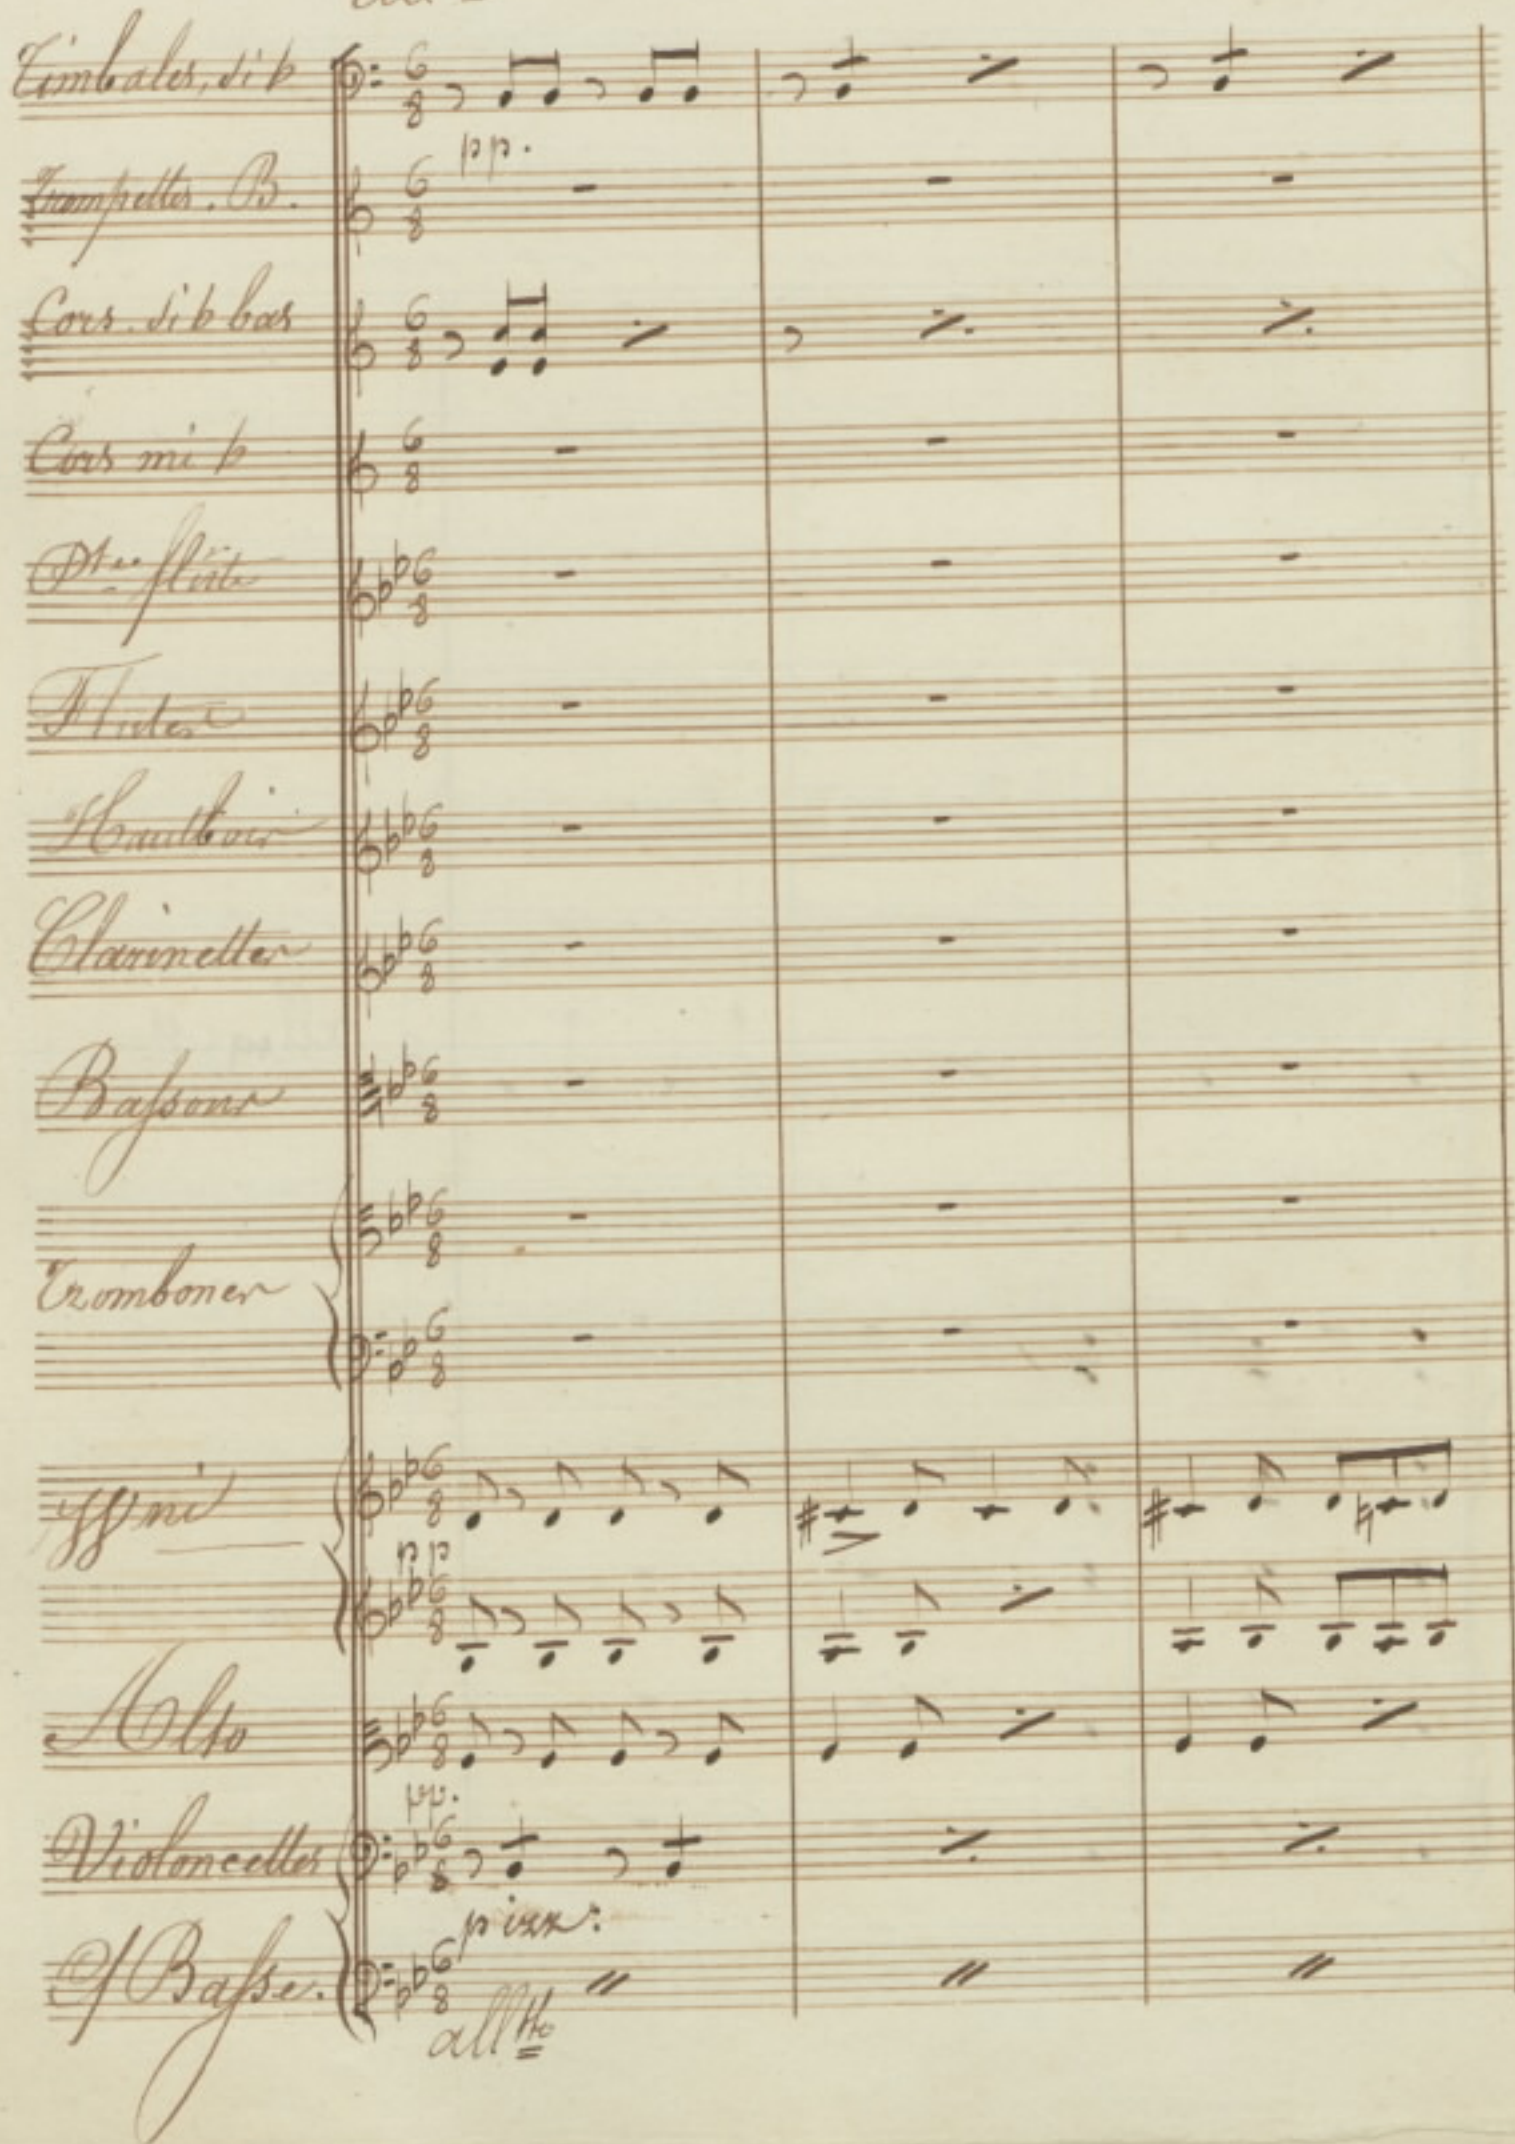 Timbales, si b
pp.
Trompettes. B.
Cors. si b bas
Cors mi b
Ptes flûte
Flutes
Hautbois
Clarinettes
Bassons
Trombones
VVni
pp
Alto
pp.
Violoncelles
pizz:
C/Basse.
alltto